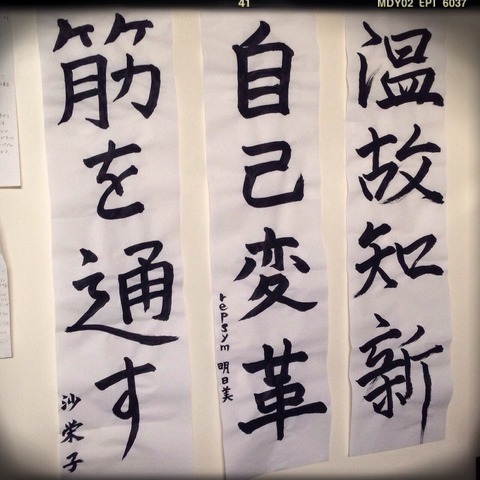 41
MDY02 EPI 6037
温故知新
自己変革
repsym 明日美
筋を通す
沙栄子